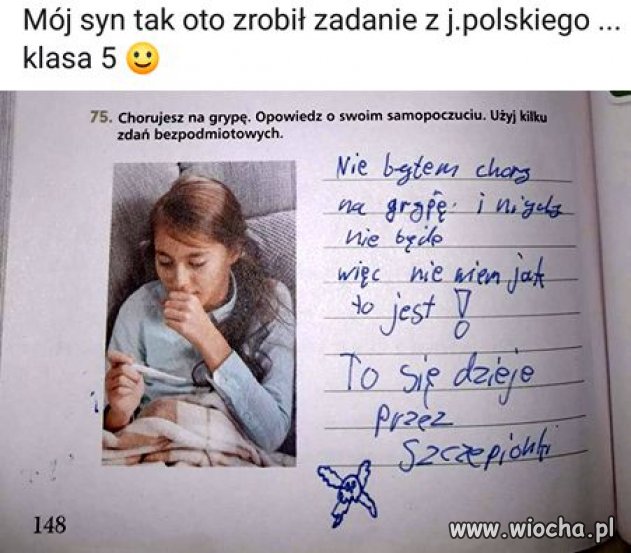 Mój syn tak oto zrobił zadanie z j.polskiego ...
klasa 5 🙂
75. Chorujesz na grypę. Opowiedz o swoim samopoczuciu. Użyj kilku
zdań bezpodmiotowych.
Nie byłem chory
na grypę i nigdy
nie będe
więc nie wiem jak
to jest!
To się dzieje
przez
Szczepionki
148
www.wiocha.pl